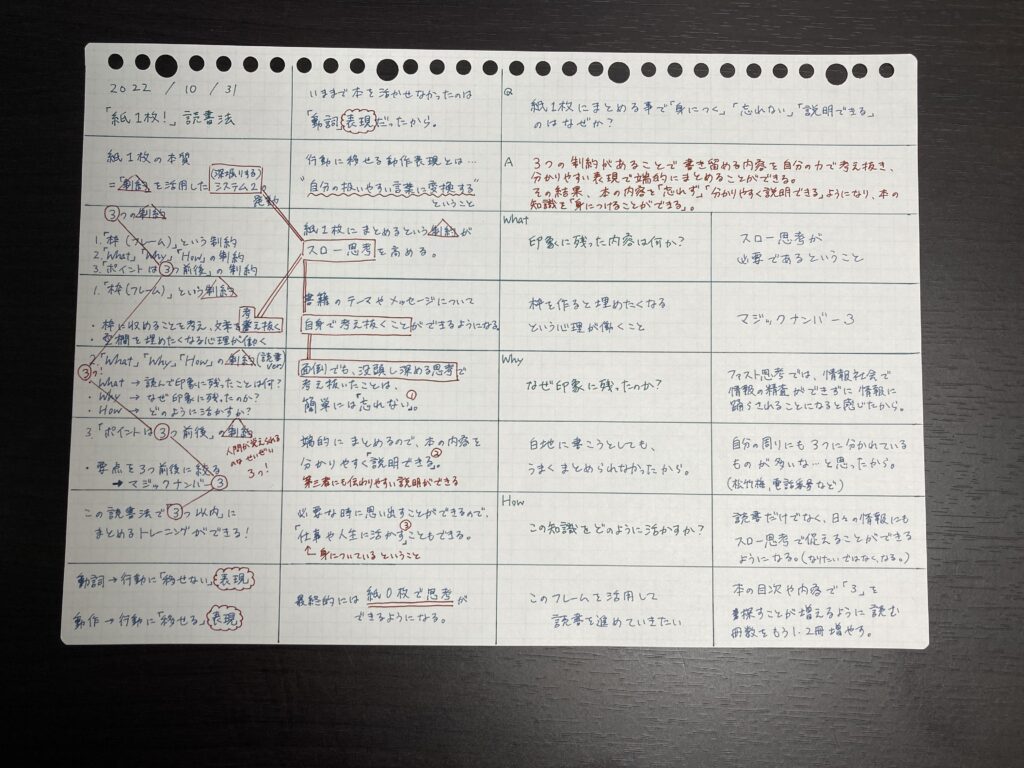 2022 / 10 / 31
「紙1枚!」読書法
紙1枚の本質
=「制約」を活用した
(深堀りする)
システム2
発動
③つの制約
1.「枠(フレーム)」という制約
2.「What」「Why」「How」の制約
3.「ポイントは③つ前後」の制約
1.「枠(フレーム)」という制約
・枠に収めることを考え、文章を考え抜く
・空欄を埋めたくなる心理が働く
2.「What」「Why」「How」の制約(読書ver)
③つ!
・What → 読んで印象に残ったことは何?
・Why → なぜ印象に残ったのか?
・How → どのように活かすか?
3.「ポイントは③つ前後」の制約
人間が覚えられる
のはせいぜい
3つ!
・要点を3つ前後に絞る
→ マジックナンバー③
この読書法で③つ以内に
まとめるトレーニングができる!
動詞→行動に「移せない」表現
動作→行動に「移せる」表現
いままで本を活かせなかったのは
「動詞」表現だったから。
行動に移せる動作表現とは…
"自分の扱いやすい言葉に変換する"
ということ
紙1枚にまとめるという制約が
スロー思考を高める。
書籍のテーマやメッセージについて
自身で考え抜くことができるようになる
面倒でも、没頭し深める思考で
考え抜いたことは、
簡単には「忘れない」。①
端的にまとめるので、本の内容を
分かりやすく「説明できる」。②
第三者にも伝わりやすい説明ができる
必要な時に思い出すことができるので、
「仕事や人生に活かす」こともできる。③
↑身についているということ
最終的には紙0枚で思考が
できるようになる。
Q
紙1枚にまとめる事で「身につく」、「忘れない」、「説明できる」
のはなぜか?
A
3つの制約があることで書き留める内容を自分の力で考え抜き、
分かりやすい表現で端的にまとめることができる。
その結果、本の内容を「忘れず」「分かりやすく説明できる」ようになり、本の
知識を「身につけることができる」。
What
印象に残った内容は何か?
スロー思考が
必要であるということ
枠を作ると埋めたくなる
という心理が働くこと
マジックナンバー3
Why
なぜ印象に残ったのか?
ファスト思考では、情報社会で
情報の精査ができずに情報に
踊らされることになると感じたから。
白地に書こうとしても、
うまくまとめられなかったから。
自分の周りにも3つに分かれている
ものが多いな…と思ったから。
(松竹梅、電話番号など)
How
この知識をどのように活かすか?
読書だけでなく、日々の情報にも
スロー思考で捉えることができる
ようになる。(なりたいではなく、なる。)
このフレームを活用して
読書を進めていきたい
本の目次や内容で「3」を
探すことが増えるように読む
冊数をもう1、2冊増やす。